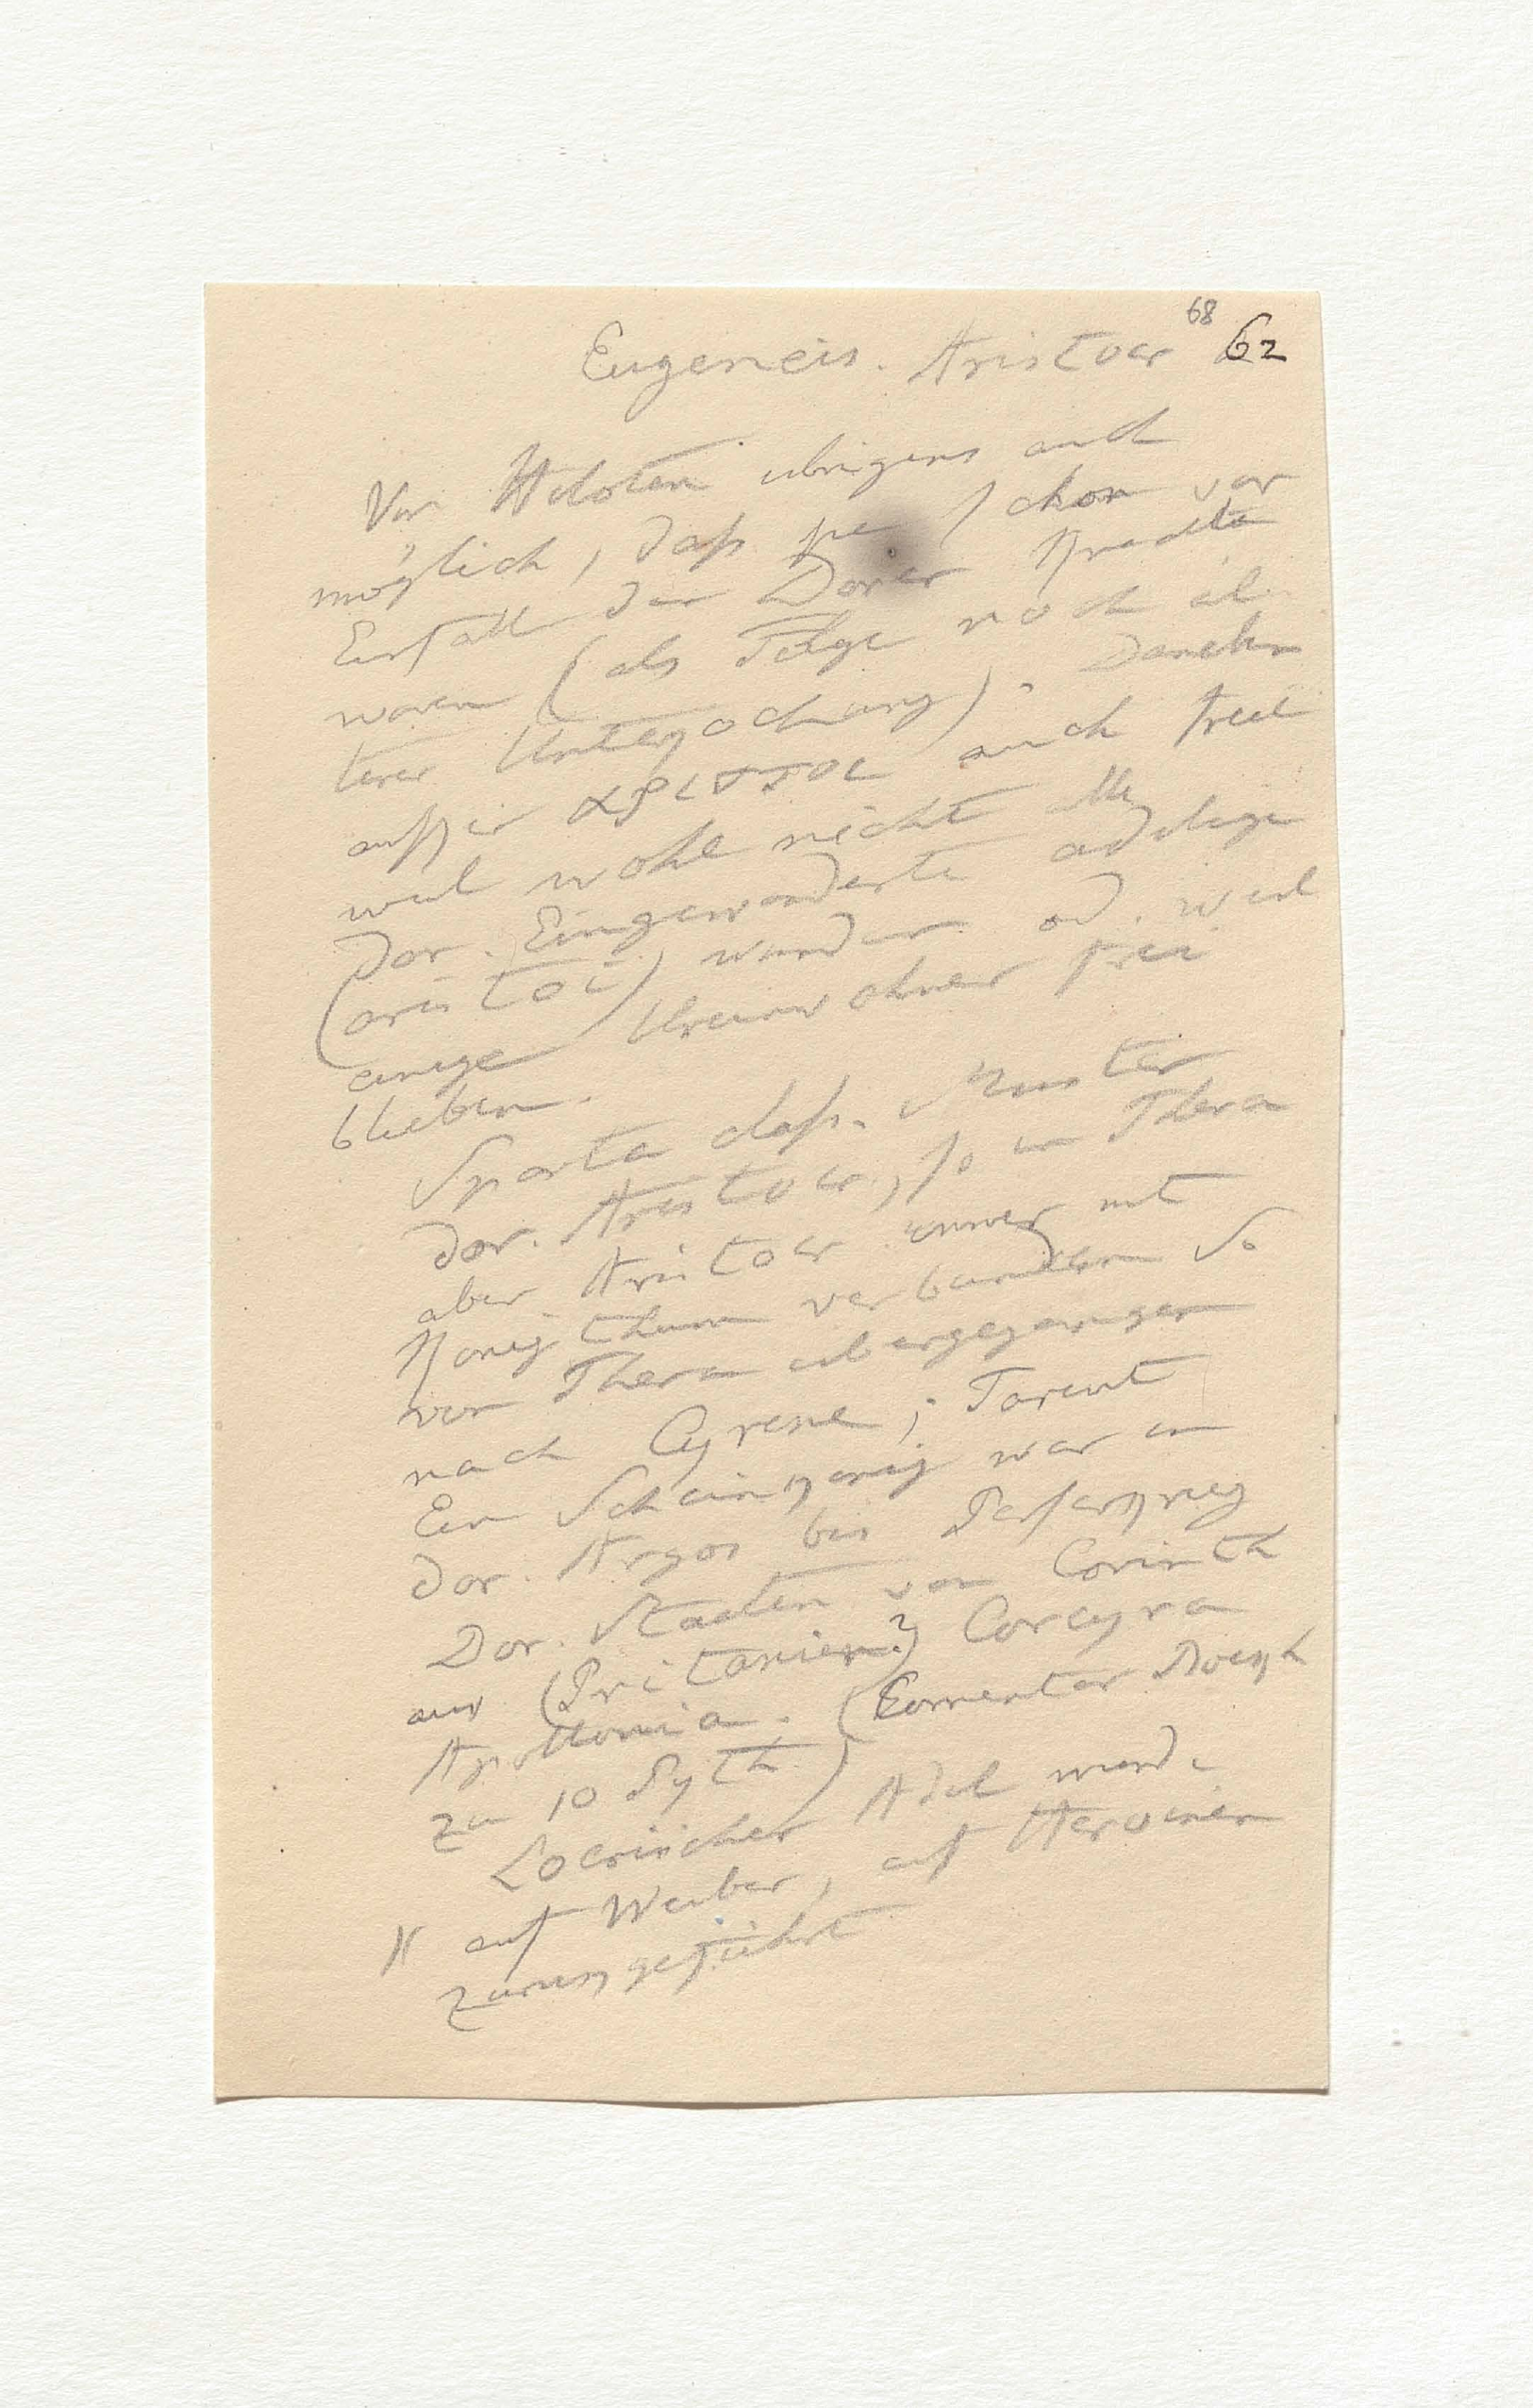 68
Eugeneis. Aristocr 62
Von Heloten übrigens auch
möglich, daß sie schon vor
Einfall der Dorer Knechte
waren (als Folge noch äl
terer Unterjochung). Daneben
außer αριστοι auch freie
weil wohl nicht alle
Dor. Eingewanderte adelige
(aristoi) wurden od. weil
einige Ureinwohner frei
blieben.
Sparta class. Muster
dor. Aristocr, so in Thera
aber Aristocr immer mit
Königthum verbunden So
von Thera übergegangen
nach Cyrene; Tarent
Ein Scheinkönig war in
dor. Argos bis Perserkrieg
Dor. Staaten von Corinth
aus (Pritanien?) Corcyra
Apollonia. (Comentar Boeckh
zu 10 Pyth)
Locrischer Adel wurde
N auf Weiber, auf Heroinen
zurückgeführt